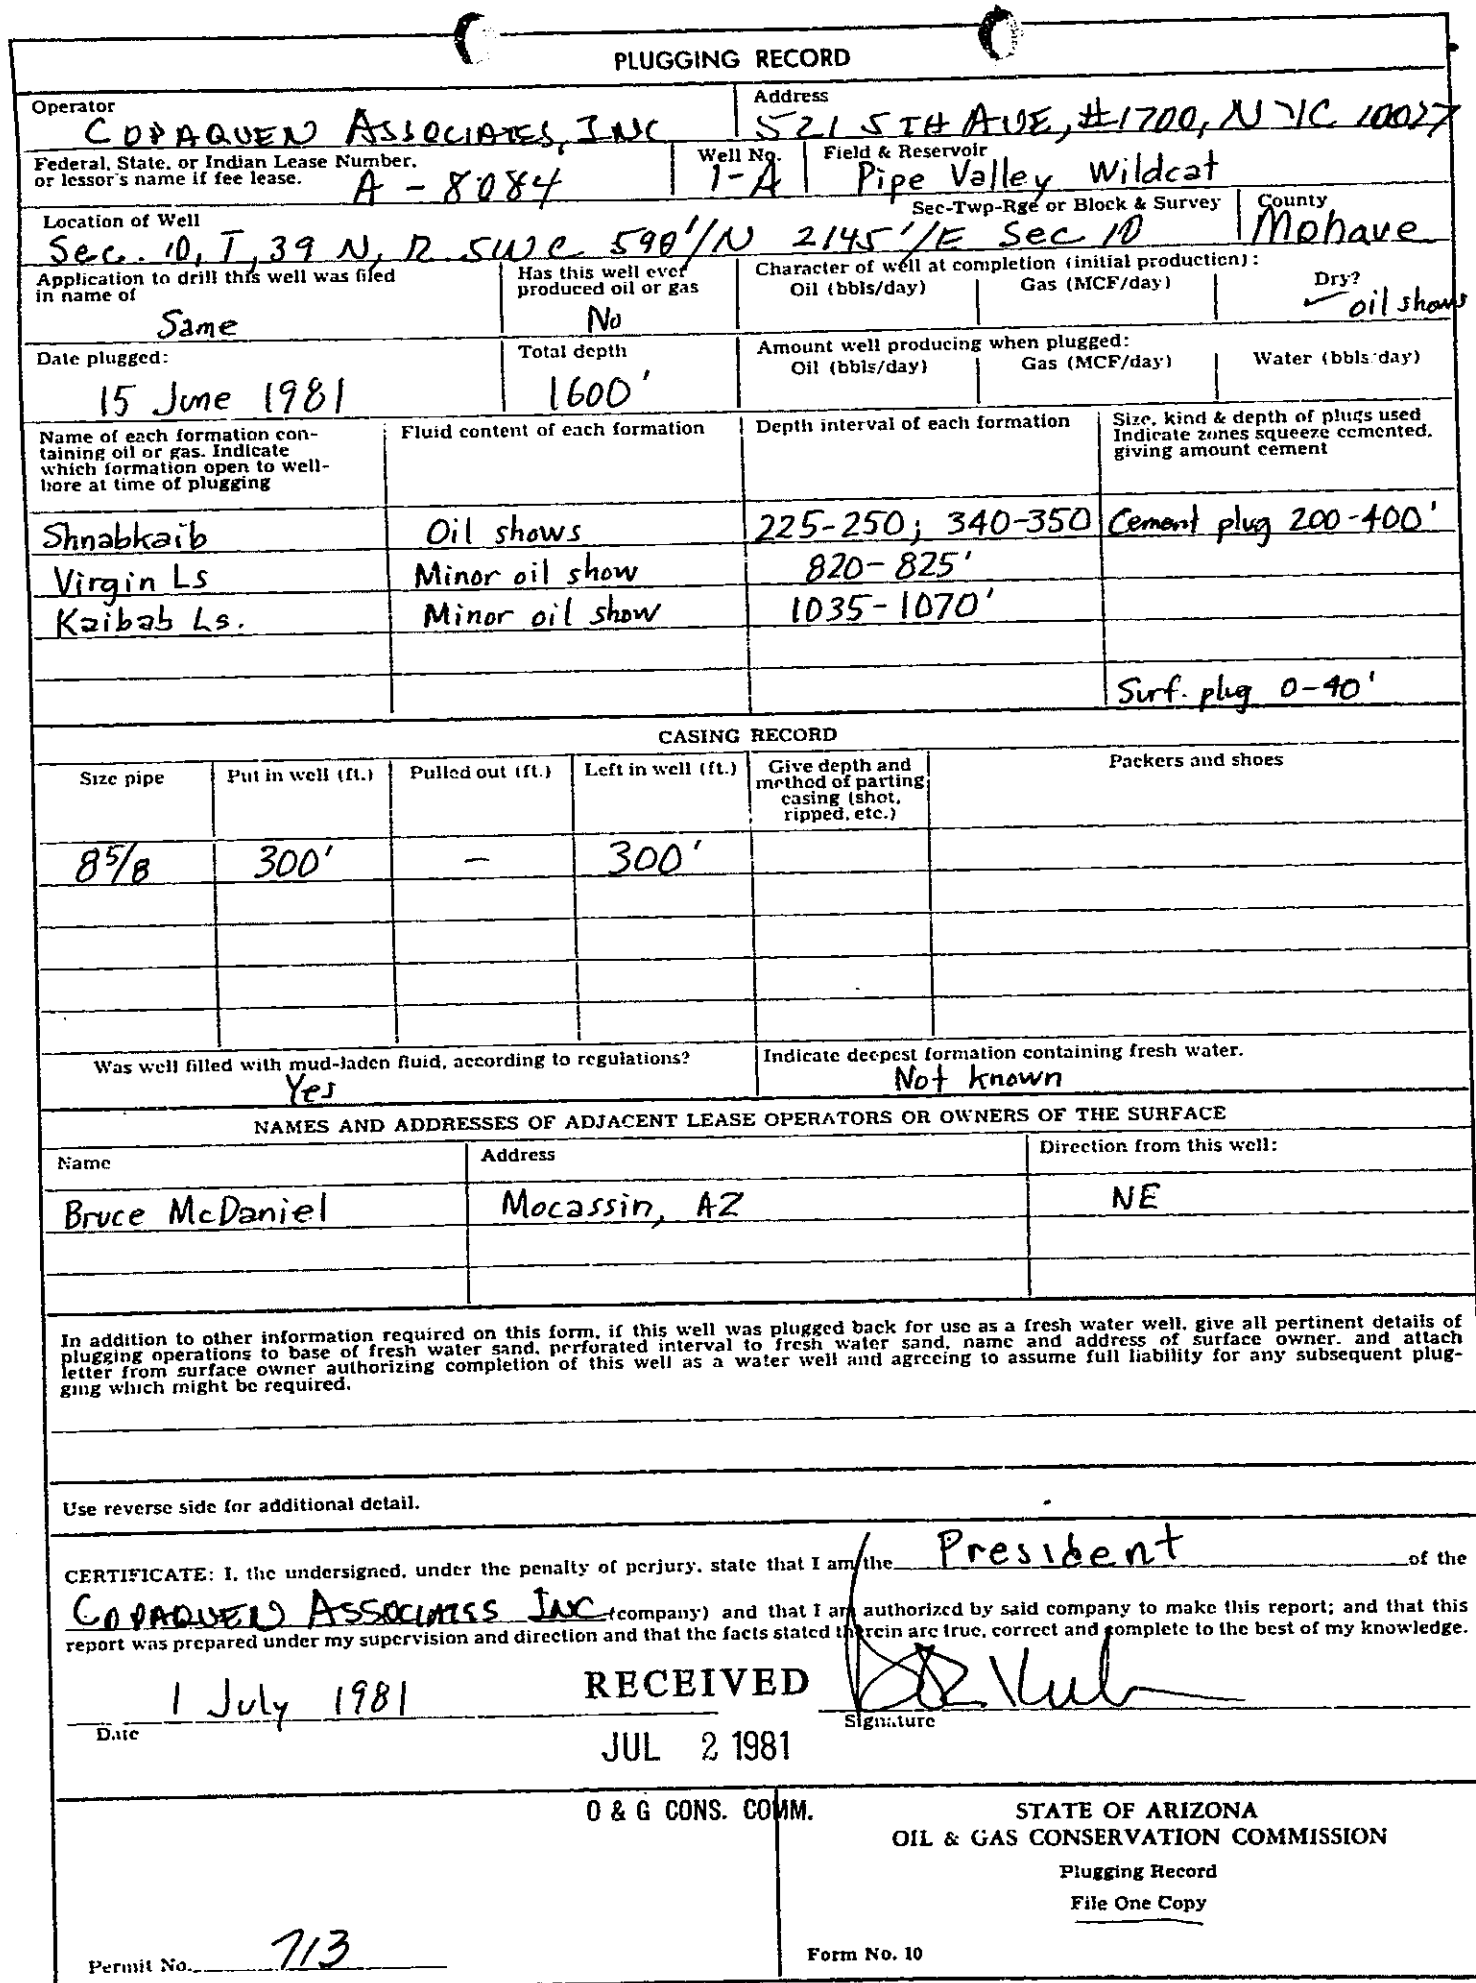 PLUGGING RECORD
Operator
COPAQUEN ASSOCIATES, INC
Address
521 5TH AVE, #1700, NYC 10027
Federal, State, or Indian Lease Number,
or lessor's name if fee lease.
A-8084
Well No.
1-A
Field & Reservoir
Pipe Valley Wildcat
Location of Well
Sec-Twp-Rge or Block & Survey
Sec. 10, T, 39 N, R 5WC 590'/N 2145'/E Sec 10
County
Mohave
Application to drill this well was filed
in name of
Same
Has this well ever
produced oil or gas
No
Character of well at completion (initial production):
Oil (bbls/day)
Gas (MCF/day)
Dry?
✓ oil shows
Date plugged:
15 June 1981
Total depth
1600'
Amount well producing when plugged:
Oil (bbls/day)
Gas (MCF/day)
Water (bbls/day)
Name of each formation con-
taining oil or gas. Indicate
which formation open to well-
bore at time of plugging
Fluid content of each formation
Depth interval of each formation
Size, kind & depth of plugs used
Indicate zones squeeze cemented,
giving amount cement
Shnabkaib Oil shows 225-250; 340-350 Cement plug 200-400'
Virgin Ls Minor oil show 820-825'
Kaibab Ls. Minor oil show 1035-1070'
Surf. plug 0-40'
CASING RECORD
Size pipe
Put in well (ft.)
Pulled out (ft.)
Left in well (ft.)
Give depth and
method of parting
casing (shot,
ripped, etc.)
Packers and shoes
8 5/8 300' - 300'
Was well filled with mud-laden fluid, according to regulations?
Yes
Indicate deepest formation containing fresh water.
Not known
NAMES AND ADDRESSES OF ADJACENT LEASE OPERATORS OR OWNERS OF THE SURFACE
Name Address Direction from this well:
Bruce McDaniel Mocassin, AZ NE
In addition to other information required on this form, if this well was plugged back for use as a fresh water well, give all pertinent details of
plugging operations to base of fresh water sand, perforated interval to fresh water sand, name and address of surface owner, and attach
letter from surface owner authorizing completion of this well as a water well and agreeing to assume full liability for any subsequent plug-
ging which might be required.
Use reverse side for additional detail.
CERTIFICATE: I, the undersigned, under the penalty of perjury, state that I am the President of the
COPAQUEN ASSOCIATES INC (company) and that I am authorized by said company to make this report; and that this
report was prepared under my supervision and direction and that the facts stated therein are true, correct and complete to the best of my knowledge.
1 July 1981
Date
RECEIVED
JUL 2 1981
O & G CONS. COMM.
Signature
STATE OF ARIZONA
OIL & GAS CONSERVATION COMMISSION
Plugging Record
File One Copy
Permit No. 713
Form No. 10